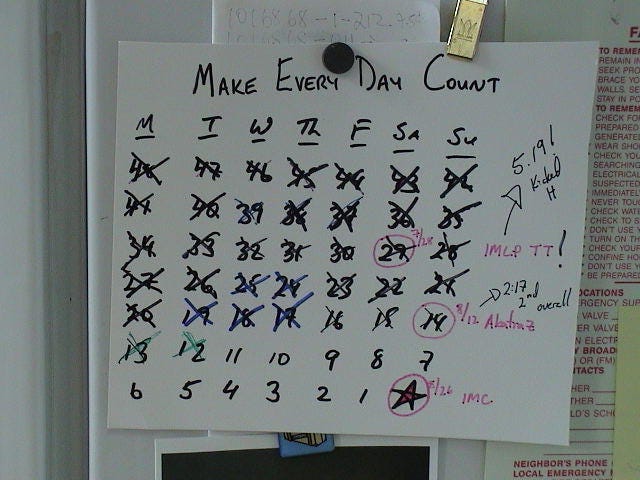 1016868-1-212.75
MAKE EVERY DAY COUNT
M T W Th F Sa Su
48 47 46 45 44 43 42
41 40 39 38 37 36 35
34 33 32 31 30 29 7/28 28 IMLP TT!
5.19!
Kicked
it
27 26 25 24 23 22 21
20 19 18 17 16 15 14 8/12 Alcatraz
2:17 2nd
overall
13 12 11 10 9 8 7
6 5 4 3 2 1 8/26 IMC
TO REMEM
REMAIN IN
SEEK PRO
BRACE YO
WALLS. SE
STAY IN PO
TO REMEM
CHECK FOR
PREPARED
GENERATE
WEAR SHO
CHECK YOU
SEARCHING
ELECTRICAL
SUSPECTED
IMMEDIATE
NEVER TOUC
CHECK WATE
CHECK TO S
DON'T USE Y
TURN ON TH
CHECK YOUR
CONFINE HO
DON'T USE Y
BE PREPARED
OCATIONS
ERGENCY SUP
VALVE
ER VALVE
N ELECTR
Y BROAD
) OR (FM)
NTACTS
HER
THER
LD'S SCHO
NEIGHBOR'S PHONE
LOCAL EMERGENCY M